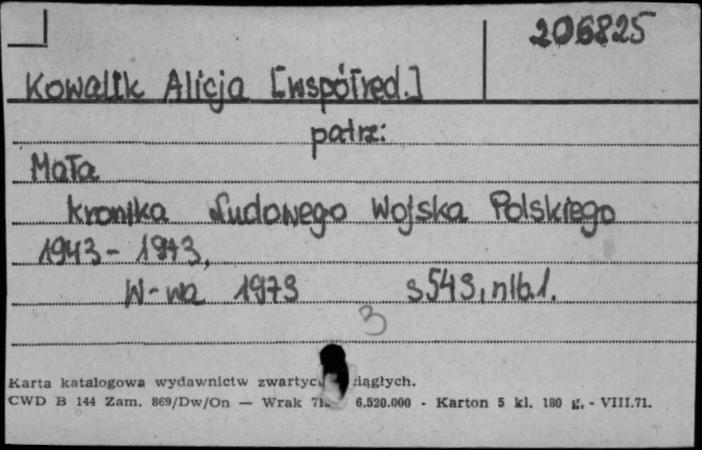 206825
Kowalik Alicja [współred.]
patrz:
Mała
kronika Ludowego Wojska Polskiego
1943-1973,
W-wa 1973 s543, nlb1.
3
Karta katalogowa wydawnictw zwartyc iągłych.
CWD B 144 Zam. 869/Dw/On — Wrak 71. 6.520.000 - Karton 5 kl. 180 g. - VIII.71.